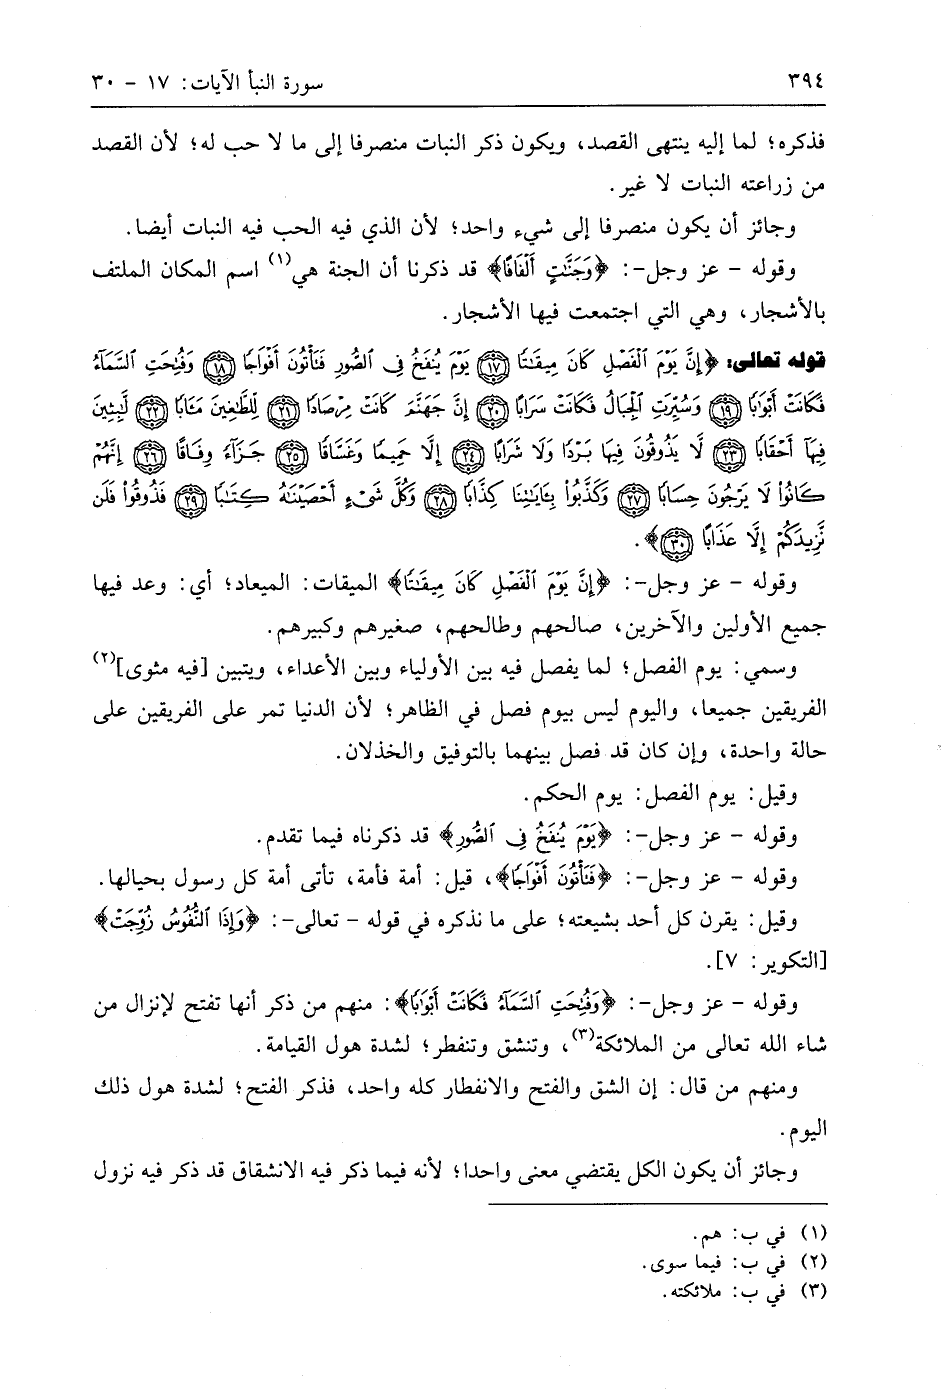 ٣٩٤ سورة النبأ الآيات: ١٧ - ٣٠
فذكره؛ لما إليه ينتهى القصد، ويكون ذكر النبات منصرفا إلى ما لا حب له؛ لأن القصد
من زراعته النبات لا غير.
وجائز أن يكون منصرفا إلى شيء واحد؛ لأن الذي فيه الحب فيه النبات أيضا.
وقوله - عز وجل-: ﴿وَجَنَّٰتٍ أَلْفَافًا﴾ قد ذكرنا أن الجنة هي(١) اسم المكان الملتف
بالأشجار، وهي التي اجتمعت فيها الأشجار.
قوله تعالى: ﴿إِنَّ يَوْمَ ٱلْفَصْلِ كَانَ مِيقَٰتًا ⁧١٧⁩ يَوْمَ يُنفَخُ فِى ٱلصُّورِ فَتَأْتُونَ أَفْوَاجًا ⁧١٨⁩ وَفُتِحَتِ ٱلسَّمَآءُ
فَكَانَتْ أَبْوَٰبًا ⁧١٩⁩ وَسُيِّرَتِ ٱلْجِبَالُ فَكَانَتْ سَرَابًا ⁧٢٠⁩ إِنَّ جَهَنَّمَ كَانَتْ مِرْصَادًا ⁧٢١⁩ لِّلطَّٰغِينَ مَـَٔابًا ⁧٢٢⁩ لَّٰبِثِينَ
فِيهَآ أَحْقَابًا ⁧٢٣⁩ لَّا يَذُوقُونَ فِيهَا بَرْدًا وَلَا شَرَابًا ⁧٢٤⁩ إِلَّا حَمِيمًا وَغَسَّاقًا ⁧٢٥⁩ جَزَآءً وِفَاقًا ⁧٢٦⁩ إِنَّهُمْ
كَانُوا۟ لَا يَرْجُونَ حِسَابًا ⁧٢٧⁩ وَكَذَّبُوا۟ بِـَٔايَٰتِنَا كِذَّابًا ⁧٢٨⁩ وَكُلَّ شَىْءٍ أَحْصَيْنَٰهُ كِتَٰبًا ⁧٢٩⁩ فَذُوقُوا۟ فَلَن
نَّزِيدَكُمْ إِلَّا عَذَابًا ⁧٣٠⁩﴾.
وقوله - عز وجل-: ﴿إِنَّ يَوْمَ ٱلْفَصْلِ كَانَ مِيقَٰتًا﴾ الميقات: الميعاد؛ أي: وعد فيها
جميع الأولين والآخرين، صالحهم وطالحهم، صغيرهم وكبيرهم.
وسمي: يوم الفصل؛ لما يفصل فيه بين الأولياء وبين الأعداء، ويتبين [فيه مثوى](٢)
الفريقين جميعا، واليوم ليس بيوم فصل في الظاهر؛ لأن الدنيا تمر على الفريقين على
حالة واحدة، وإن كان قد فصل بينهما بالتوفيق والخذلان.
وقيل: يوم الفصل: يوم الحكم.
وقوله - عز وجل-: ﴿يَوْمَ يُنفَخُ فِى ٱلصُّورِ﴾ قد ذكرناه فيما تقدم.
وقوله - عز وجل-: ﴿فَتَأْتُونَ أَفْوَاجًا﴾، قيل: أمة فأمة، تأتى أمة كل رسول بحيالها.
وقيل: يقرن كل أحد بشيعته؛ على ما نذكره في قوله - تعالى-: ﴿وَإِذَا ٱلنُّفُوسُ زُوِّجَتْ﴾
[التكوير: ٧].
وقوله - عز وجل-: ﴿وَفُتِحَتِ ٱلسَّمَآءُ فَكَانَتْ أَبْوَٰبًا﴾: منهم من ذكر أنها تفتح لإنزال من
شاء الله تعالى من الملائكة(٣)، وتنشق وتنفطر؛ لشدة هول القيامة.
ومنهم من قال: إن الشق والفتح والانفطار كله واحد، فذكر الفتح؛ لشدة هول ذلك
اليوم.
وجائز أن يكون الكل يقتضي معنى واحدا؛ لأنه فيما ذكر فيه الانشقاق قد ذكر فيه نزول
(١) في ب: هم.
(٢) في ب: فيما سوى.
(٣) في ب: ملائكته.